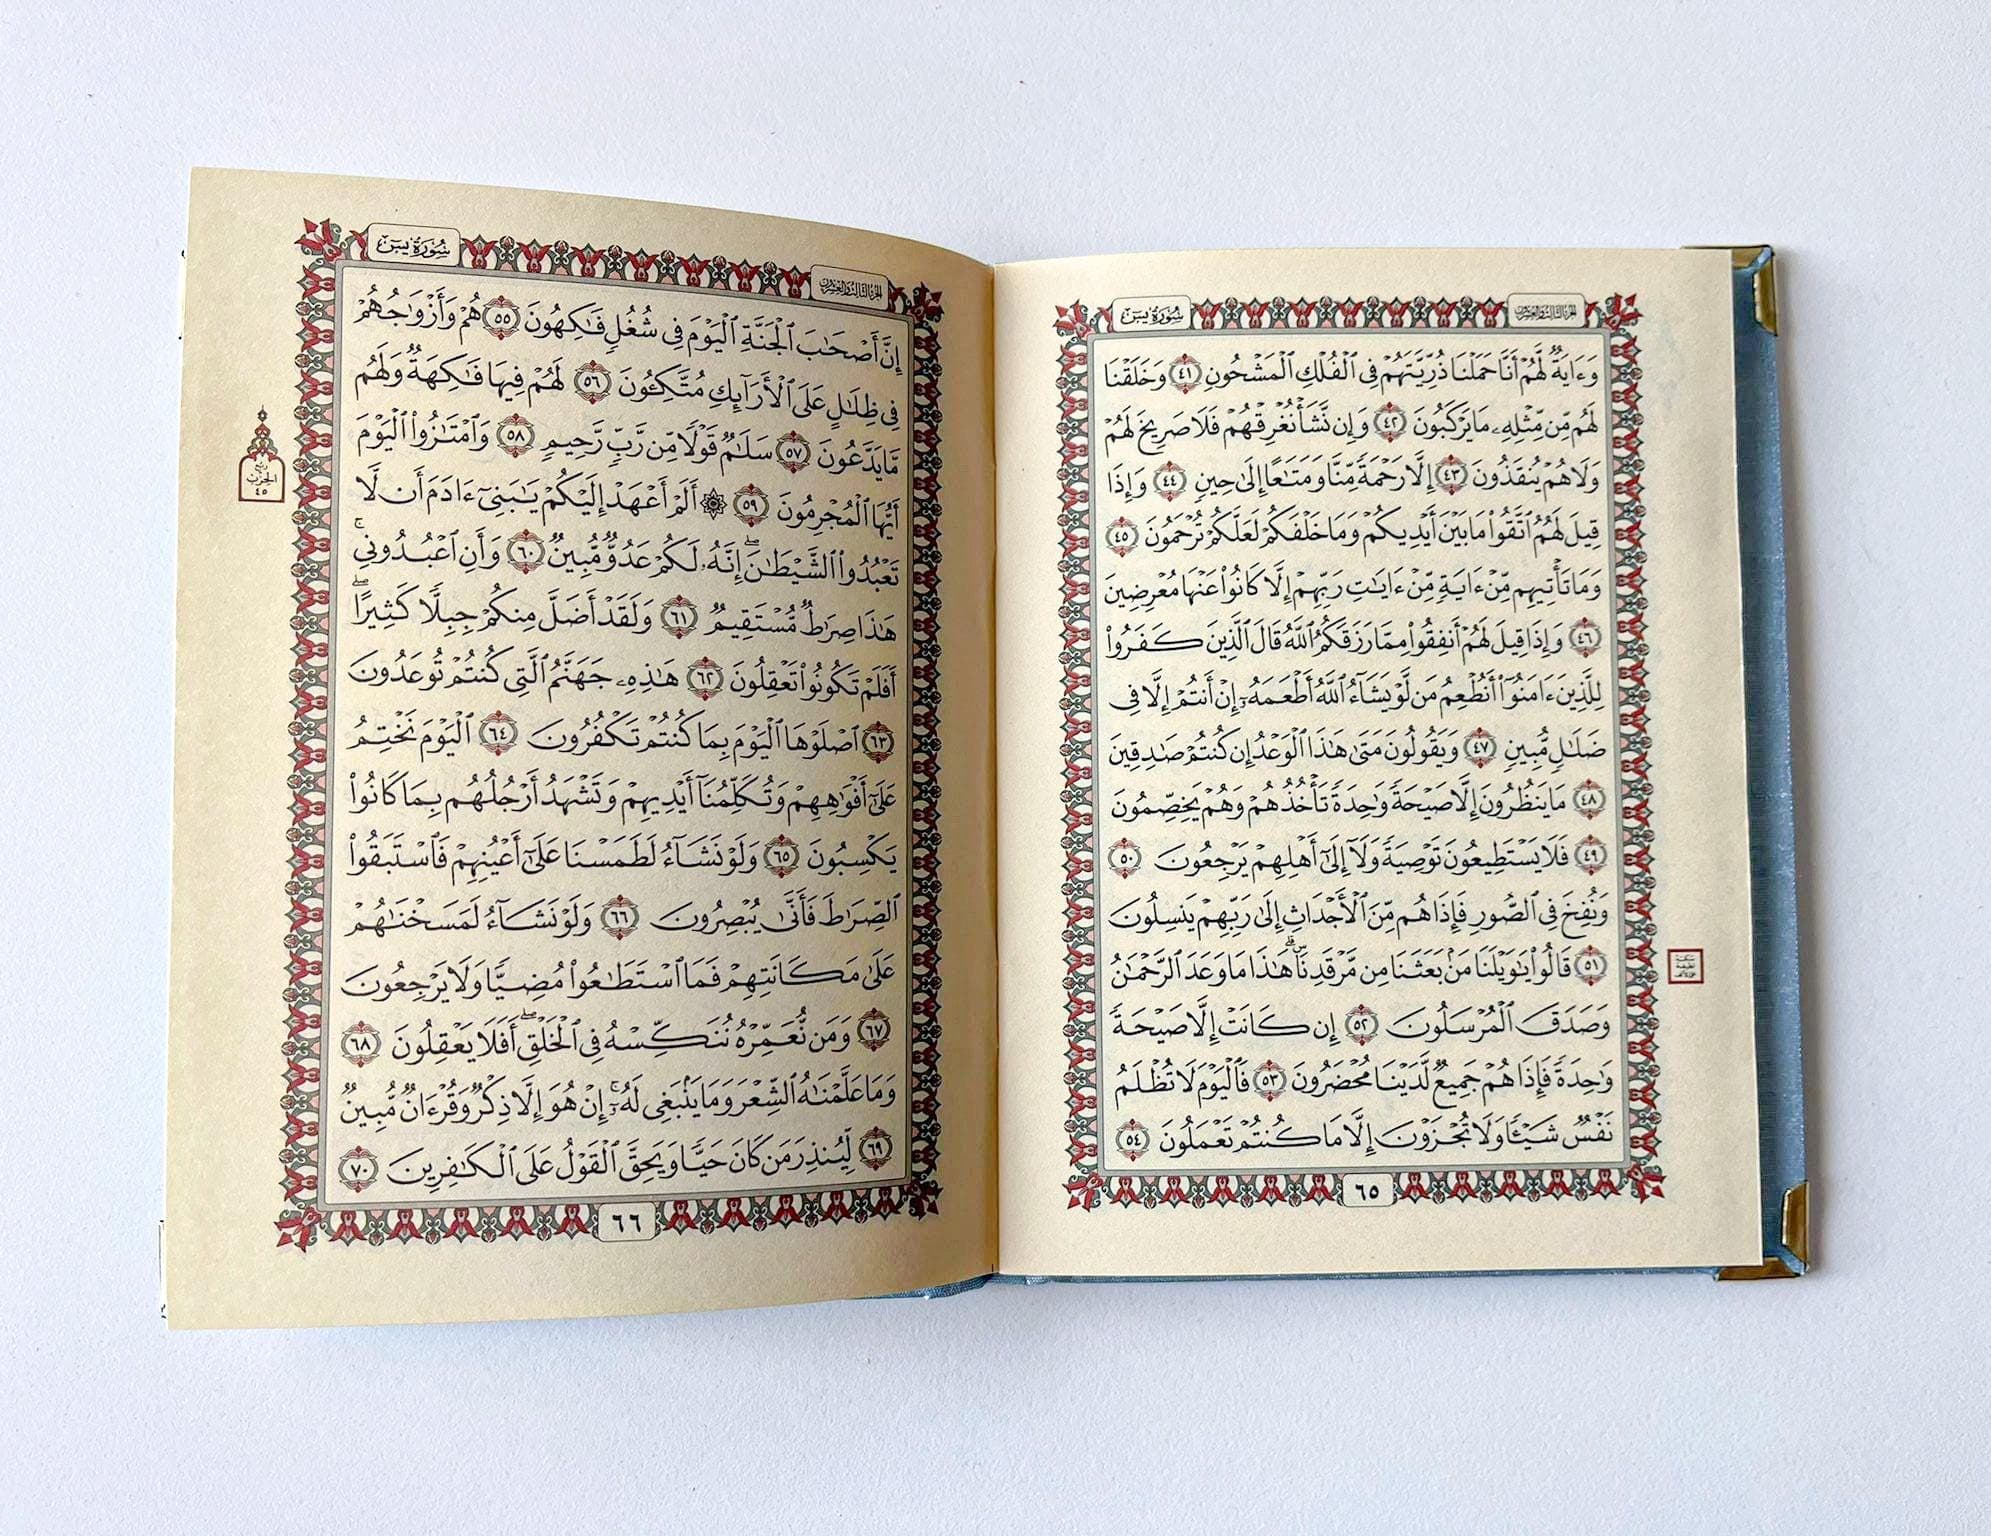 سُورَةُ يسٓ
الجزء الثالث والعشرون
وَءَايَةٞ لَّهُمۡ أَنَّا حَمَلۡنَا ذُرِّيَّتَهُمۡ فِي ٱلۡفُلۡكِ ٱلۡمَشۡحُونِ ٤١ وَخَلَقۡنَا
لَهُم مِّن مِّثۡلِهِۦ مَا يَرۡكَبُونَ ٤٢ وَإِن نَّشَأۡ نُغۡرِقۡهُمۡ فَلَا صَرِيخَ لَهُمۡ
وَلَا هُمۡ يُنقَذُونَ ٤٣ إِلَّا رَحۡمَةٗ مِّنَّا وَمَتَٰعًا إِلَىٰ حِينٖ ٤٤ وَإِذَا
قِيلَ لَهُمُ ٱتَّقُواْ مَا بَيۡنَ أَيۡدِيكُمۡ وَمَا خَلۡفَكُمۡ لَعَلَّكُمۡ تُرۡحَمُونَ ٤٥
وَمَا تَأۡتِيهِم مِّنۡ ءَايَةٖ مِّنۡ ءَايَٰتِ رَبِّهِمۡ إِلَّا كَانُواْ عَنۡهَا مُعۡرِضِينَ
٤٦ وَإِذَا قِيلَ لَهُمۡ أَنفِقُواْ مِمَّا رَزَقَكُمُ ٱللَّهُ قَالَ ٱلَّذِينَ كَفَرُواْ
لِلَّذِينَ ءَامَنُوٓاْ أَنُطۡعِمُ مَن لَّوۡ يَشَآءُ ٱللَّهُ أَطۡعَمَهُۥٓ إِنۡ أَنتُمۡ إِلَّا فِي
ضَلَٰلٖ مُّبِينٖ ٤٧ وَيَقُولُونَ مَتَىٰ هَٰذَا ٱلۡوَعۡدُ إِن كُنتُمۡ صَٰدِقِينَ
٤٨ مَا يَنظُرُونَ إِلَّا صَيۡحَةٗ وَٰحِدَةٗ تَأۡخُذُهُمۡ وَهُمۡ يَخِصِّمُونَ
٤٩ فَلَا يَسۡتَطِيعُونَ تَوۡصِيَةٗ وَلَآ إِلَىٰٓ أَهۡلِهِمۡ يَرۡجِعُونَ ٥٠
وَنُفِخَ فِي ٱلصُّورِ فَإِذَا هُم مِّنَ ٱلۡأَجۡدَاثِ إِلَىٰ رَبِّهِمۡ يَنسِلُونَ
٥١ قَالُواْ يَٰوَيۡلَنَا مَنۢ بَعَثَنَا مِن مَّرۡقَدِنَاۜۗ هَٰذَا مَا وَعَدَ ٱلرَّحۡمَٰنُ
وَصَدَقَ ٱلۡمُرۡسَلُونَ ٥٢ إِن كَانَتۡ إِلَّا صَيۡحَةٗ
وَٰحِدَةٗ فَإِذَا هُمۡ جَمِيعٞ لَّدَيۡنَا مُحۡضَرُونَ ٥٣ فَٱلۡيَوۡمَ لَا تُظۡلَمُ
نَفۡسٞ شَيۡـٔٗا وَلَا تُجۡزَوۡنَ إِلَّا مَا كُنتُمۡ تَعۡمَلُونَ ٥٤
٦٥
سُورَةُ يسٓ
الجزء الثالث والعشرون
إِنَّ أَصۡحَٰبَ ٱلۡجَنَّةِ ٱلۡيَوۡمَ فِي شُغُلٖ فَٰكِهُونَ ٥٥ هُمۡ وَأَزۡوَٰجُهُمۡ
فِي ظِلَٰلٍ عَلَى ٱلۡأَرَآئِكِ مُتَّكِـُٔونَ ٥٦ لَهُمۡ فِيهَا فَٰكِهَةٞ وَلَهُم
مَّا يَدَّعُونَ ٥٧ سَلَٰمٞ قَوۡلٗا مِّن رَّبّٖ رَّحِيمٖ ٥٨ وَٱمۡتَٰزُواْ ٱلۡيَوۡمَ
أَيُّهَا ٱلۡمُجۡرِمُونَ ٥٩ ۞ أَلَمۡ أَعۡهَدۡ إِلَيۡكُمۡ يَٰبَنِيٓ ءَادَمَ أَن لَّا
تَعۡبُدُواْ ٱلشَّيۡطَٰنَۖ إِنَّهُۥ لَكُمۡ عَدُوّٞ مُّبِينٞ ٦٠ وَأَنِ ٱعۡبُدُونِيۚ
هَٰذَا صِرَٰطٞ مُّسۡتَقِيمٞ ٦١ وَلَقَدۡ أَضَلَّ مِنكُمۡ جِبِلّٗا كَثِيرًاۖ
أَفَلَمۡ تَكُونُواْ تَعۡقِلُونَ ٦٢ هَٰذِهِۦ جَهَنَّمُ ٱلَّتِي كُنتُمۡ تُوعَدُونَ
٦٣ ٱصۡلَوۡهَا ٱلۡيَوۡمَ بِمَا كُنتُمۡ تَكۡفُرُونَ ٦٤ ٱلۡيَوۡمَ نَخۡتِمُ
عَلَىٰٓ أَفۡوَٰهِهِمۡ وَتُكَلِّمُنَآ أَيۡدِيهِمۡ وَتَشۡهَدُ أَرۡجُلُهُم بِمَا كَانُواْ
يَكۡسِبُونَ ٦٥ وَلَوۡ نَشَآءُ لَطَمَسۡنَا عَلَىٰٓ أَعۡيُنِهِمۡ فَٱسۡتَبَقُواْ
ٱلصِّرَٰطَ فَأَنَّىٰ يُبۡصِرُونَ ٦٦ وَلَوۡ نَشَآءُ لَمَسَخۡنَٰهُمۡ
عَلَىٰ مَكَانَتِهِمۡ فَمَا ٱسۡتَطَٰعُواْ مُضِيّٗا وَلَا يَرۡجِعُونَ
٦٧ وَمَن نُّعَمِّرۡهُ نُنَكِّسۡهُ فِي ٱلۡخَلۡقِۖ أَفَلَا يَعۡقِلُونَ ٦٨
وَمَا عَلَّمۡنَٰهُ ٱلشِّعۡرَ وَمَا يَنۢبَغِي لَهُۥٓۚ إِنۡ هُوَ إِلَّا ذِكۡرٞ وَقُرۡءَانٞ مُّبِينٞ
٦٩ لِّيُنذِرَ مَن كَانَ حَيّٗا وَيَحِقَّ ٱلۡقَوۡلُ عَلَى ٱلۡكَٰفِرِينَ ٧٠
٦٦
ربع
الحزب
٤٥